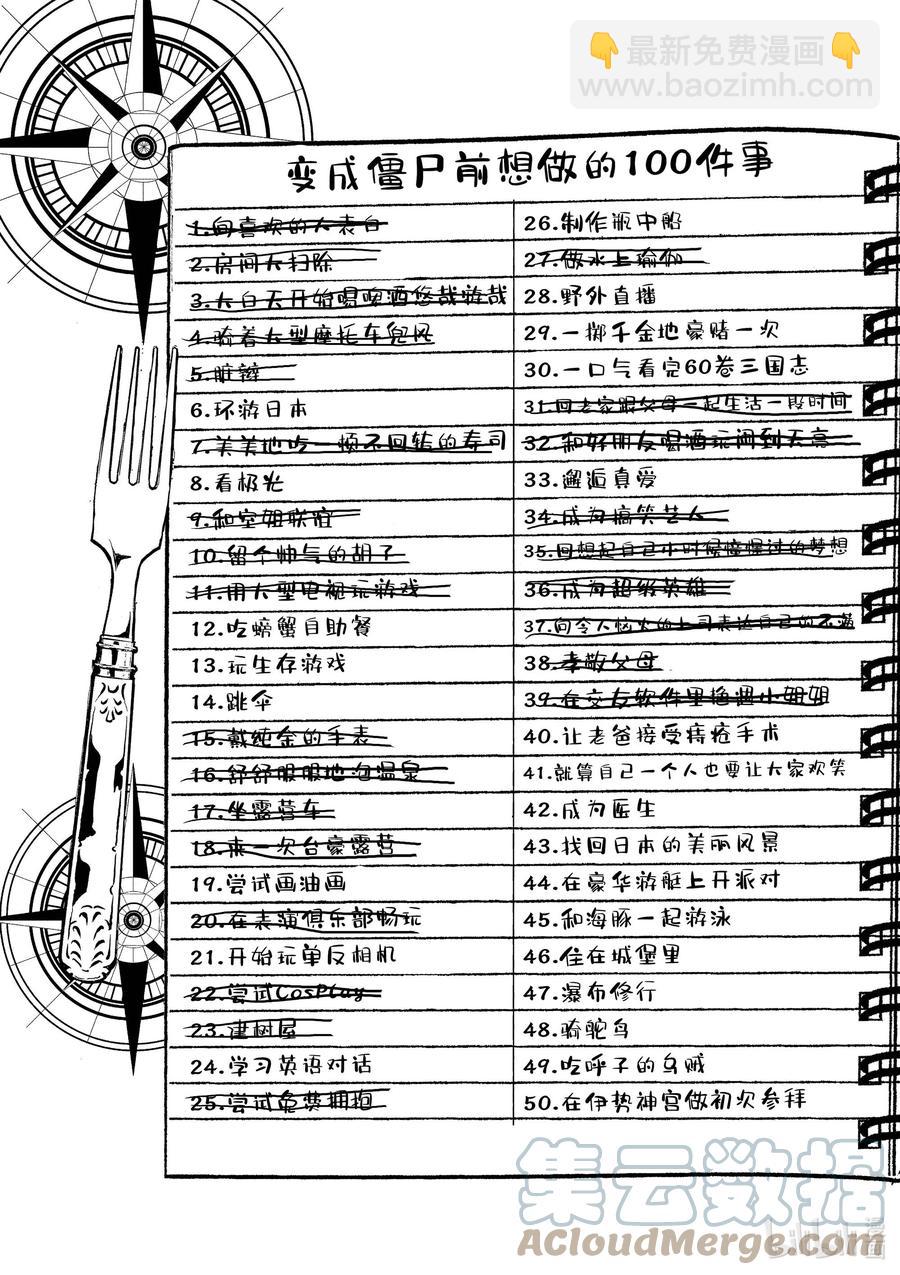 👇最新免费漫画👇
www.baozimh.com
变成僵尸前想做的100件事
1.向喜欢的人表白
2.房间大扫除
3.大白天开始喝啤酒悠哉游哉
4.骑着大型摩托车兜风
5.脏辫
6.环游日本
7.美美地吃一顿不回转的寿司
8.看极光
9.和空姐联谊
10.留个帅气的胡子
11.用大型电视玩游戏
12.吃螃蟹自助餐
13.玩生存游戏
14.跳伞
15.戴纯金的手表
16.舒舒服服地泡温泉
17.坐露营车
18.来一次台豪露营
19.尝试画油画
20.在表演俱乐部畅玩
21.开始玩单反相机
22.尝试CosPlay
23.建树屋
24.学习英语对话
25.尝试免费拥抱
26.制作瓶中船
27.做水上瑜伽
28.野外直播
29.一掷千金地豪赌一次
30.一口气看完60卷三国志
31.回老家跟父母一起生活一段时间
32.和好朋友喝酒玩闹到天亮
33.邂逅真爱
34.成为搞笑艺人
35.回想起自己小时候憧憬过的梦想
36.成为超级英雄
37.向令人恼火的上司表达自己的不满
38.孝敬父母
39.在交友软件里艳遇小姐姐
40.让老爸接受痔疮手术
41.就算自己一个人也要让大家欢笑
42.成为医生
43.找回日本的美丽风景
44.在豪华游艇上开派对
45.和海豚一起游泳
46.住在城堡里
47.瀑布修行
48.骑鸵鸟
49.吃呼子的乌贼
50.在伊势神宫做初次参拜
集云数据
ACloudMerge.com